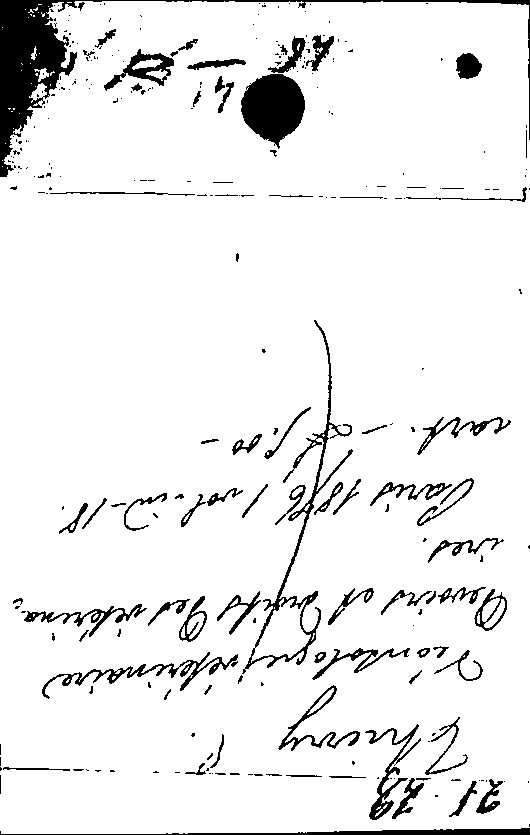 21.23
Thierry
Déontologie vétérinaire
Devoirs et Droits des vétérina-
ires.
Paris 1876, 1 vol. in-18.
cart. — 5,00 —
41 —